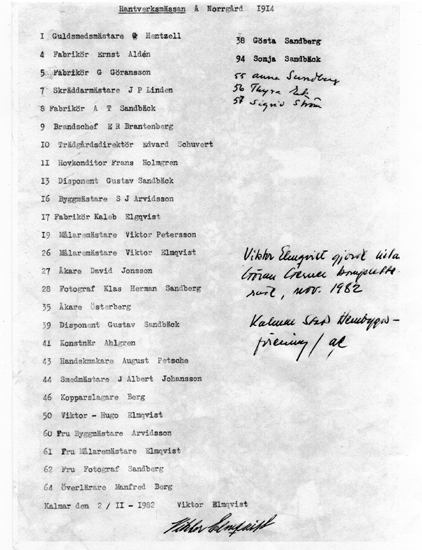 Hantverksmässan Å Norrgård 1914
1 Guldsmedsmästare Hentzell
4 Fabrikör Ernst Aldén
5 Fabrikör G Göransson
7 Skräddarmästare J P Linden
8 Fabrikör A T Sandbäck
9 Brandschef E R Brantenberg
10 Trädgårdsdirektör Edvard Schuvert
11 Hovkonditor Frans Holmgren
13 Disponent Gustav Sandbäck
16 Byggmästare S J Arvidsson
17 Fabrikör Kaleb Elgqvist
19 Målaremästare Viktor Petersson
26 Målaremästare Viktor Elmqvist
27 Åkare David Jonsson
28 Fotograf Klas Herman Sandberg
35 Åkare Österberg
39 Disponent Gustav Sandbäck
41 Konstnär Ahlgren
43 Handskmakare August Petsche
44 Smedmästare J Albert Johansson
46 Kopparslagare Berg
50 Viktor - Hugo Elmqvist
60 Fru Byggmästare Arvidsson
61 Fru Målaremästare Elmqvist
62 Fru Fotograf Sandberg
64 Överlärare Manfred Berg
Kalmar den 2 / II - 1982 Viktor Elmqvist
Viktor Elmqvist
38 Gösta Sandberg
94 Sonja Sandbäck
55 Anna Sandberg
56 Thyra Ek
57 Sigrid Ström
Viktor Elmqvist gjorde
nov. 1982
Kalmar Stads Hembygds-
förening /